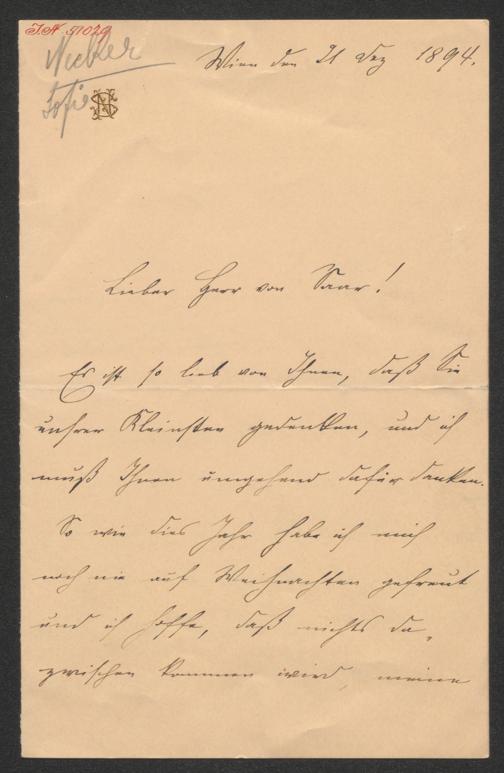 I.N. 51029
Wien den 21 Dez 1894.
Sofie
Lieber Herr von Saar!
Es ist so lieb von Ihnen, daß Sie
unsrer Kleinsten gedenken, und ich
muß Ihnen umgehend dafür danken.
So wie dies Jahr habe ich mich
noch nie auf Weihnachten gefreut
und ich hoffe, daß nichts da-
zwischen kommen wird, meine